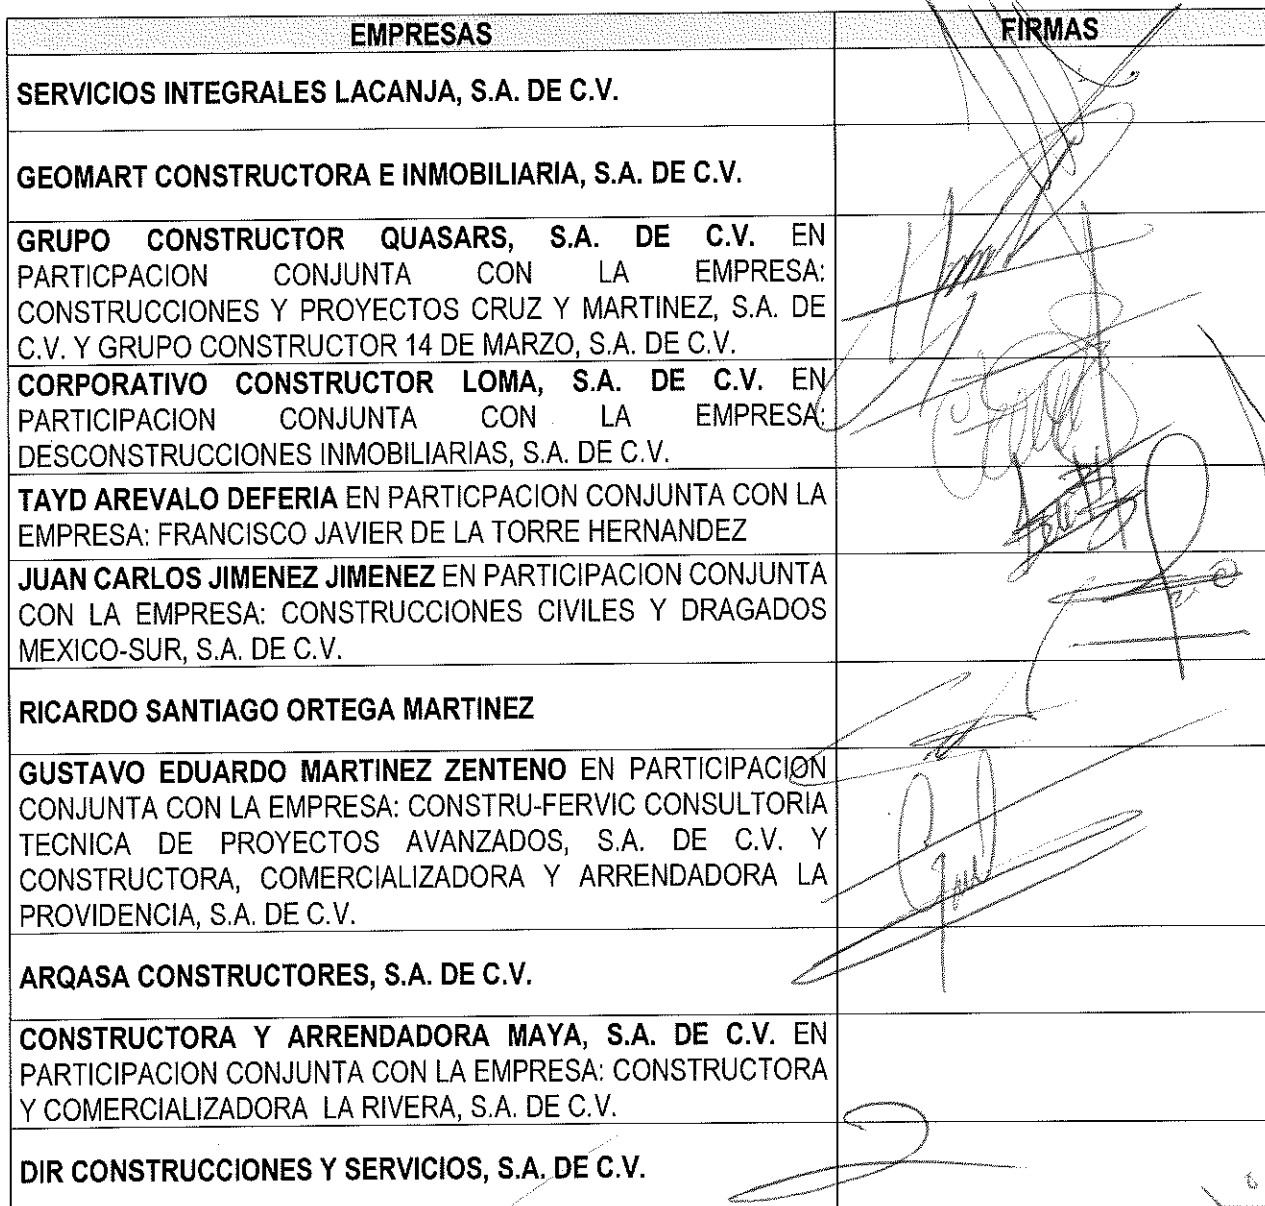 EMPRESAS FIRMAS
SERVICIOS INTEGRALES LACANJA, S.A. DE C.V.
GEOMART CONSTRUCTORA E INMOBILIARIA, S.A. DE C.V.
GRUPO CONSTRUCTOR QUASARS, S.A. DE C.V. EN
PARTICPACION CONJUNTA CON LA EMPRESA:
CONSTRUCCIONES Y PROYECTOS CRUZ Y MARTINEZ, S.A. DE
C.V. Y GRUPO CONSTRUCTOR 14 DE MARZO, S.A. DE C.V.
CORPORATIVO CONSTRUCTOR LOMA, S.A. DE C.V. EN
PARTICIPACION CONJUNTA CON LA EMPRESA:
DESCONSTRUCCIONES INMOBILIARIAS, S.A. DE C.V.
TAYD AREVALO DEFERIA EN PARTICPACION CONJUNTA CON LA
EMPRESA: FRANCISCO JAVIER DE LA TORRE HERNANDEZ
JUAN CARLOS JIMENEZ JIMENEZ EN PARTICIPACION CONJUNTA
CON LA EMPRESA: CONSTRUCCIONES CIVILES Y DRAGADOS
MEXICO-SUR, S.A. DE C.V.
RICARDO SANTIAGO ORTEGA MARTINEZ
GUSTAVO EDUARDO MARTINEZ ZENTENO EN PARTICIPACION
CONJUNTA CON LA EMPRESA: CONSTRU-FERVIC CONSULTORIA
TECNICA DE PROYECTOS AVANZADOS, S.A. DE C.V. Y
CONSTRUCTORA, COMERCIALIZADORA Y ARRENDADORA LA
PROVIDENCIA, S.A. DE C.V.
ARQASA CONSTRUCTORES, S.A. DE C.V.
CONSTRUCTORA Y ARRENDADORA MAYA, S.A. DE C.V. EN
PARTICIPACION CONJUNTA CON LA EMPRESA: CONSTRUCTORA
Y COMERCIALIZADORA LA RIVERA, S.A. DE C.V.
DIR CONSTRUCCIONES Y SERVICIOS, S.A. DE C.V.